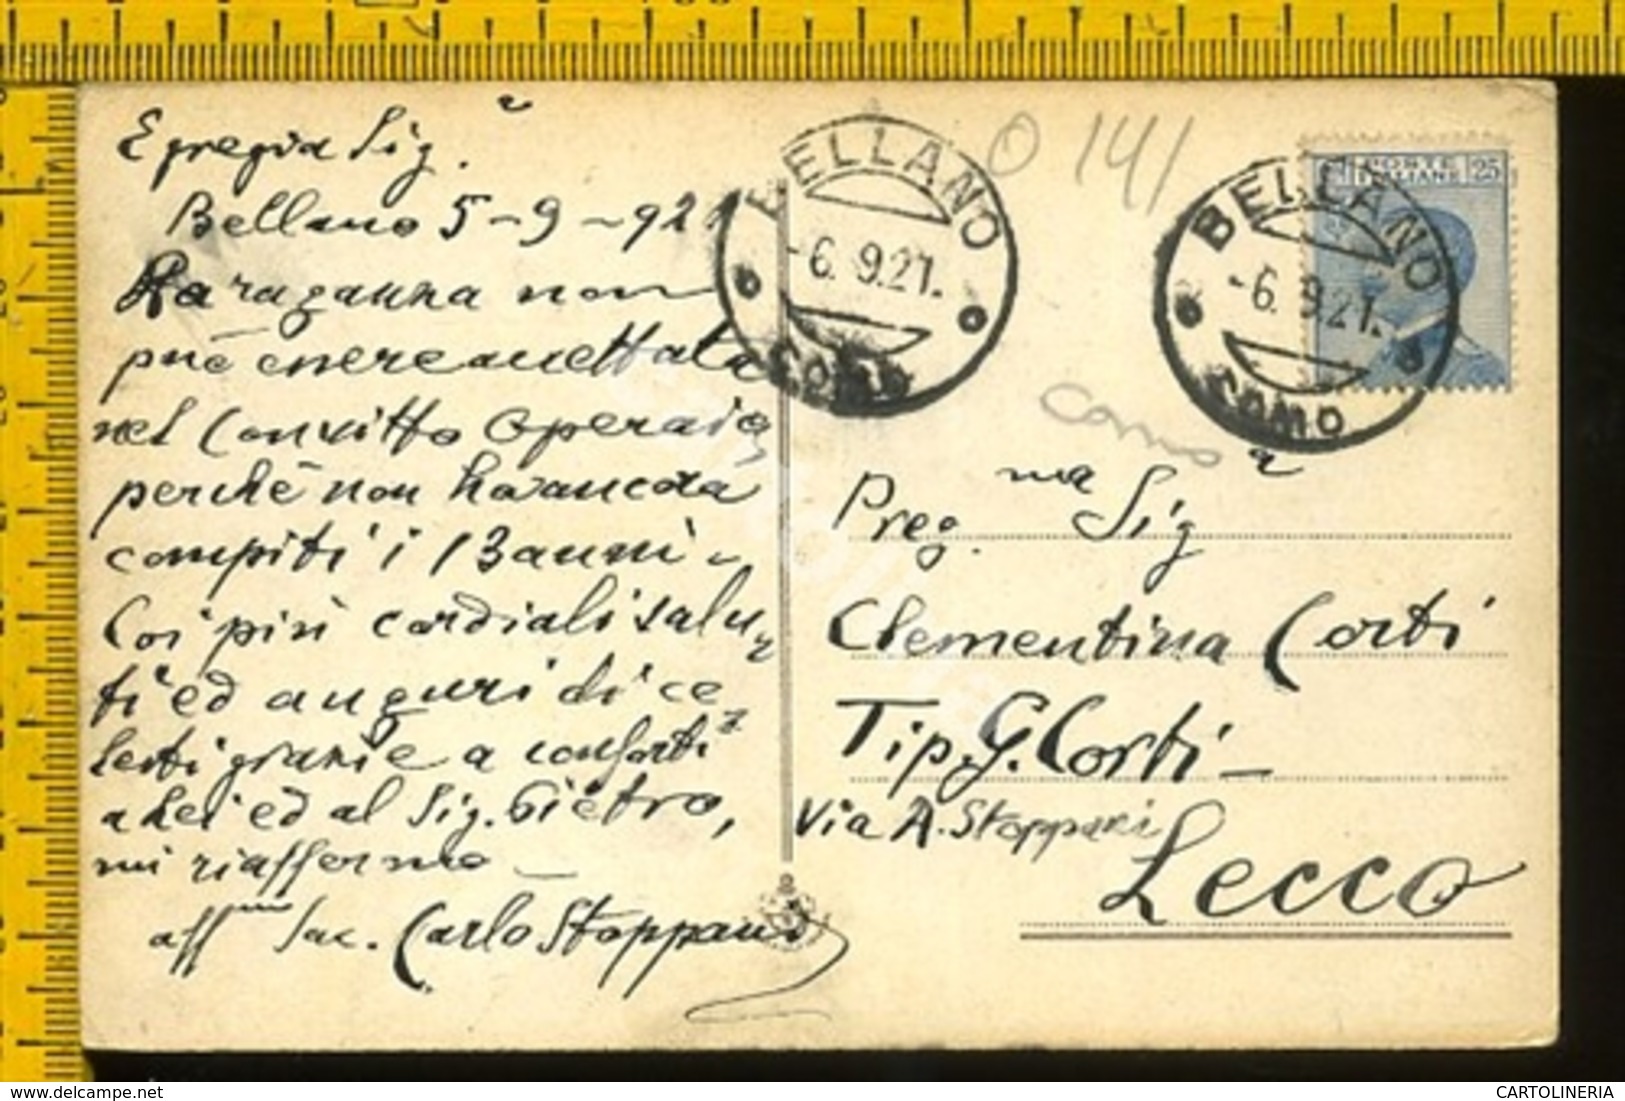 Egregia Sig.a
Bellano 5-9-921
La ragazza non
può essere accettata
nel Convitto operaio
perchè non ha ancora
compiti i 13 anni -
Coi più cordiali salu-
ti ed auguri di ce-
lesti grazie e conforti
a Lei ed al Sig. Pietro,
mi riaffermo
aff.mo Sac. Carlo Stoppani
BELLANO
-6.9.21.
COMO
0 141
BELLANO
-6.9.21.
COMO
POSTE
ITALIANE
25
Como
Preg.ma Sig.a
Clementina Corti
Tip. G. Corti -
Via A. Stoppani
Lecco
CARTOLINERIA